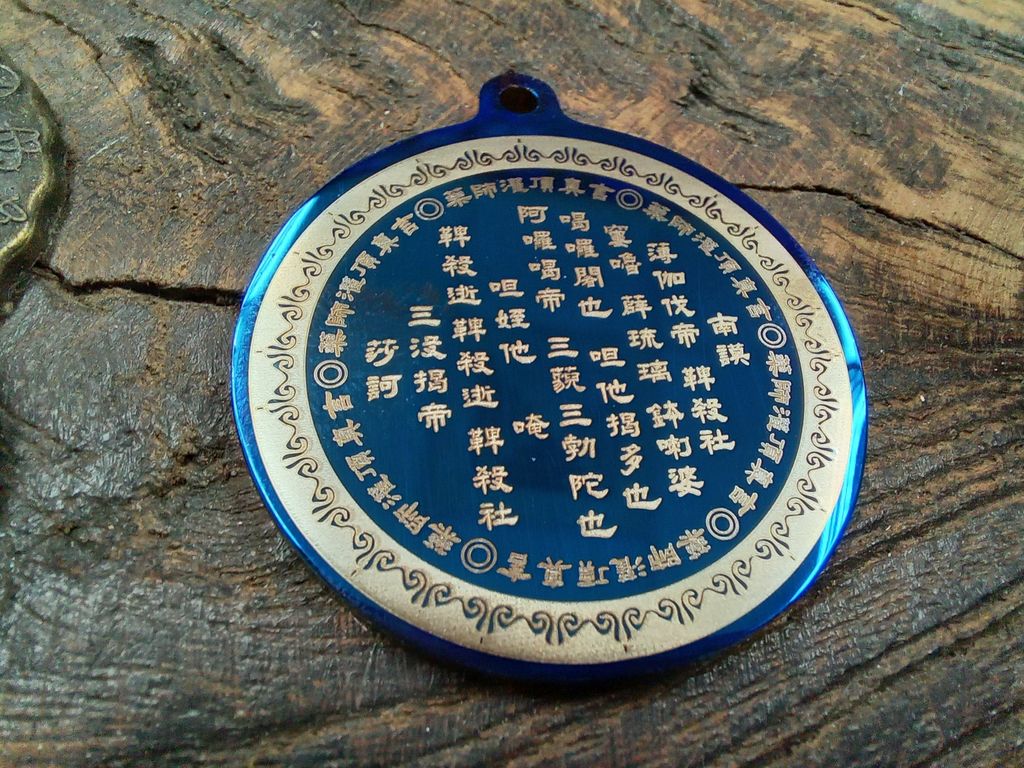 藥師灌頂真言
藥師灌頂真言
藥師灌頂真言
藥師灌頂真言
藥師灌頂真言
藥師灌頂真言
南謨
薄伽伐帝 鞞殺社
窶嚕 薛琉璃 鉢喇婆
喝囉闍也 呾他揭多也
阿囉喝帝 三藐三勃陀也
呾姪他 唵
鞞殺逝 鞞殺逝 鞞殺社
三沒揭帝
莎訶